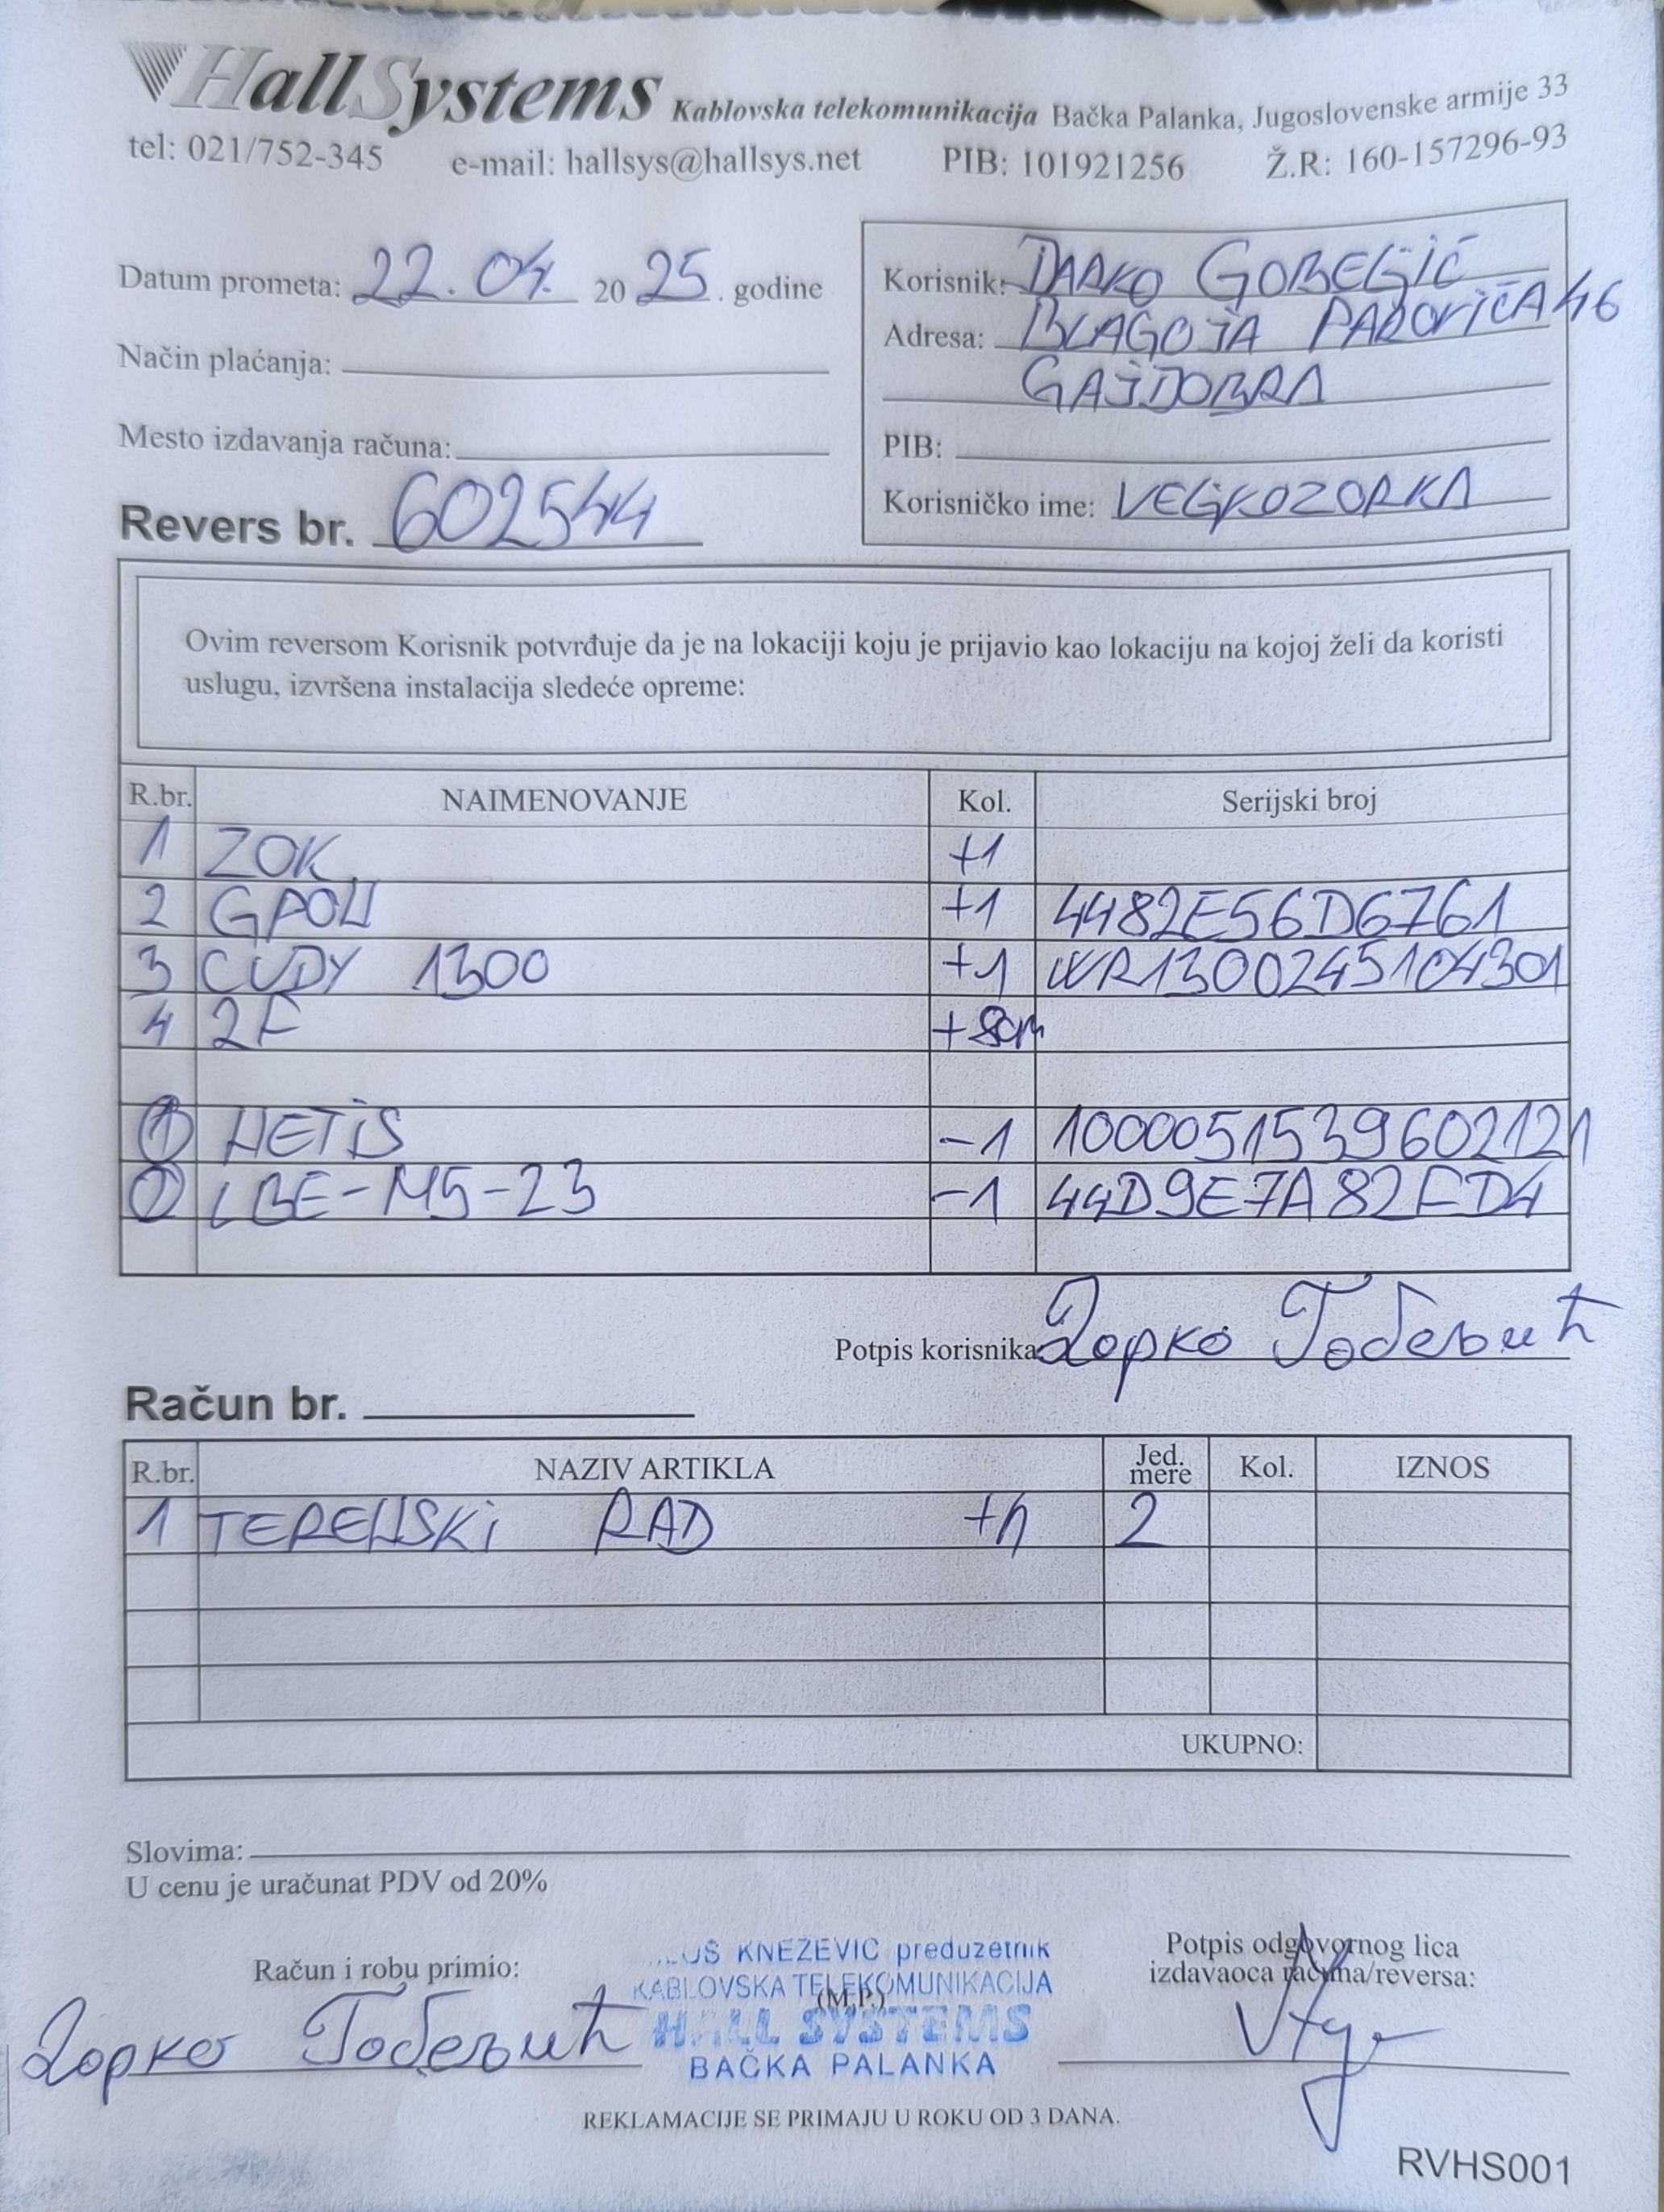 HallSystems Kablovska telekomunikacija Bačka Palanka, Jugoslovenske armije 33
tel: 021/752-345 e-mail: hallsys@hallsys.net PIB: 101921256 Ž.R: 160-157296-93
Datum prometa: 22.04. 2025. godine
Način plaćanja:
Mesto izdavanja računa:
Revers br. 602544
Korisnik: DARKO GOBELJIĆ
Adresa: BLAGOJA PAROVIĆA 46
GAJDOBRA
PIB:
Korisničko ime: VELJKOZORKA
Ovim reversom Korisnik potvrđuje da je na lokaciji koju je prijavio kao lokaciju na kojoj želi da koristi
uslugu, izvršena instalacija sledeće opreme:
R.br. NAIMENOVANJE Kol. Serijski broj
1 ZOK +1
2 GPON +1 4482E56D6761
3 CUDY 1300 +1 WR1300245104301
4 2F
1 NETIS -1 1000051539602121
LBE-M5-23 -1 44D9E7A82FD4
Potpis korisnika: Дарко Гобељић
Račun br.
R.br. NAZIV ARTIKLA Jed. mere Kol. IZNOS
1 TERENSKI RAD +h 2
UKUPNO:
Slovima:
U cenu je uračunat PDV od 20%
Račun i robu primio:
Дарко Гобељић
KNEŽEVIĆ preduzetnik
KABLOVSKA TELEKOMUNIKACIJA
(M.P.)
HALL SYSTEMS
BAČKA PALANKA
Potpis odgovornog lica
izdavaoca računa/reversa:
REKLAMACIJE SE PRIMAJU U ROKU OD 3 DANA.
RVHS001